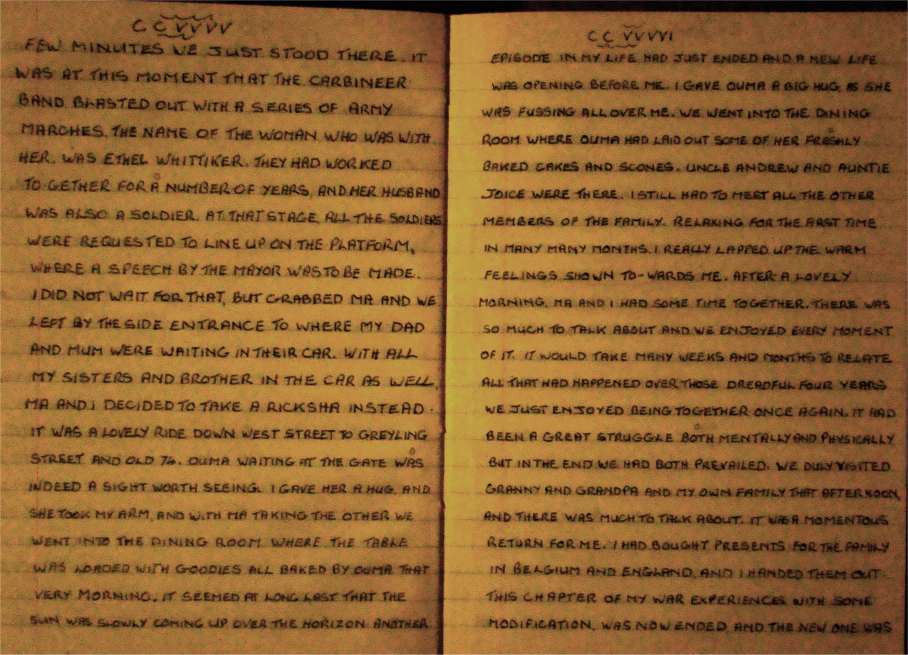 C C V V V V
FEW MINUTES WE JUST STOOD THERE. IT
WAS AT THIS MOMENT THAT THE CARBINEER
BAND BLASTED OUT WITH A SERIES OF ARMY
MARCHES. THE NAME OF THE WOMAN WHO WAS WITH
HER, WAS ETHEL WHITTIKER. THEY HAD WORKED
TO-GETHER FOR A NUMBER OF YEARS, AND HER HUSBAND
WAS ALSO A SOLDIER. AT THAT STAGE, ALL THE SOLDIERS
WERE REQUESTED TO LINE UP ON THE PLATFORM,
WHERE A SPEECH BY THE MAYOR WAS TO BE MADE.
I DID NOT WAIT FOR THAT, BUT GRABBED MA AND WE
LEFT BY THE SIDE ENTRANCE TO WHERE MY DAD
AND MUM WERE WAITING IN THEIR CAR. WITH ALL
MY SISTERS AND BROTHER IN THE CAR AS WELL,
MA AND I DECIDED TO TAKE A RICKSHA INSTEAD.
IT WAS A LOVELY RIDE DOWN WEST STREET TO GREYLING
STREET AND OLD 74. OUMA WAITING AT THE GATE WAS
INDEED A SIGHT WORTH SEEING. I GAVE HER A HUG, AND
SHE TOOK MY ARM, AND WITH MA TAKING THE OTHER WE
WENT INTO THE DINING ROOM WHERE THE TABLE
WAS LOADED WITH GOODIES ALL BAKED BY OUMA THAT
VERY MORNING. IT SEEMED AT LONG LAST THAT THE
SUN WAS SLOWLY COMING UP OVER THE HORIZON. ANOTHER
C C V V V V I
EPISODE IN MY LIFE HAD JUST ENDED AND A NEW LIFE
WAS OPENING BEFORE ME. I GAVE OUMA A BIG HUG, AS SHE
WAS FUSSING ALL OVER ME. WE WENT INTO THE DINING
ROOM WHERE OUMA HAD LAID OUT SOME OF HER FRESHLY
BAKED CAKES AND SCONES. UNCLE ANDREW AND AUNTIE
JOICE WERE THERE. I STILL HAD TO MEET ALL THE OTHER
MEMBERS OF THE FAMILY. RELAXING FOR THE FIRST TIME
IN MANY MANY MONTHS. I REALLY LAPPED UP THE WARM
FEELINGS SHOWN TO-WARDS ME. AFTER A LOVELY
MORNING, MA AND I HAD SOME TIME TOGETHER. THERE WAS
SO MUCH TO TALK ABOUT AND WE ENJOYED EVERY MOMENT
OF IT. IT WOULD TAKE MANY WEEKS AND MONTHS TO RELATE
ALL THAT HAD HAPPENED OVER THOSE DREADFUL FOUR YEARS
WE JUST ENJOYED BEING TOGETHER ONCE AGAIN. IT HAD
BEEN A GREAT STRUGGLE BOTH MENTALLY AND PHYSICALLY
BUT IN THE END WE HAD BOTH PREVAILED. WE DULY VISITED
GRANNY AND GRANDPA AND MY OWN FAMILY THAT AFTERNOON,
AND THERE WAS MUCH TO TALK ABOUT. IT WAS A MOMENTOUS
RETURN FOR ME. I HAD BOUGHT PRESENTS FOR THE FAMILY
IN BELGIUM AND ENGLAND, AND I HANDED THEM OUT.
THIS CHAPTER OF MY WAR EXPERIENCES WITH SOME
MODIFICATION, WAS NOW ENDED, AND THE NEW ONE WAS